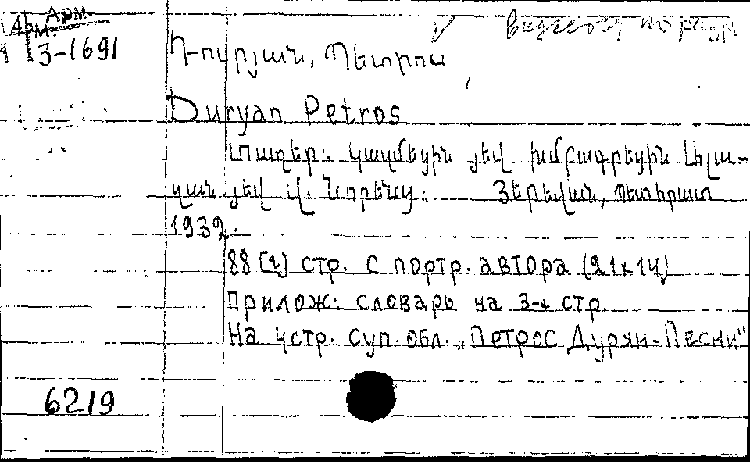 Арм.
Арм.
3-1691
Դուրյան, Պետրոս
Duryan Petros
Տաղեր. Կազմեցին յեվ խմբագրեցին
յեվ Յերեվան, Պետհրատ
1932.
88 [2] стр. с портр. автора (21х14)
Прилож: словарь на 3-х стр.
На 4 стр. суп. обл. „Петрос Дурян - Песни"
6219